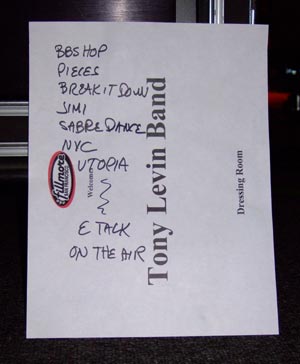 BBSHOP
PIECES
BREAK IT DOWN
JIMI
SABRE DANCE
NYC
UTOPIA
E TALK
ON THE AIR
Fillmore
Welcomes
Tony Levin Band
Dressing Room